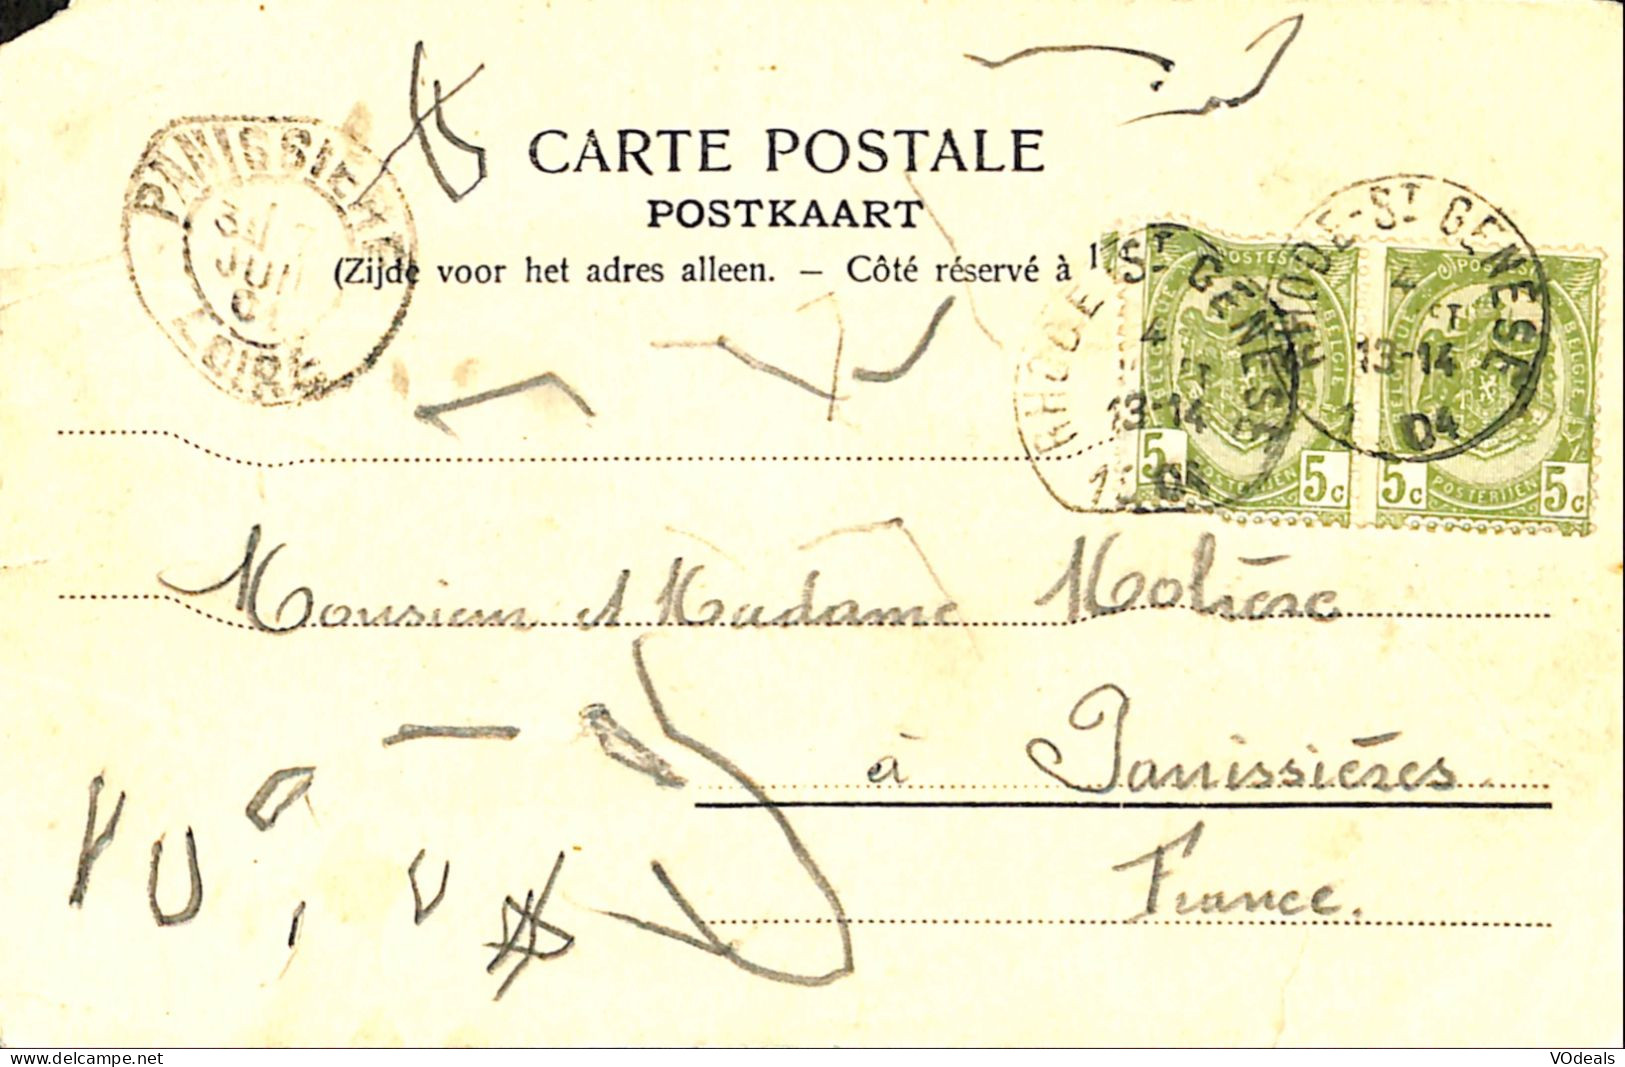 CARTE POSTALE
POSTKAART
(Zijde voor het adres alleen. — Côté réservé à l'
PANISSIÈRE
JUI
LOIRE
RHODE-ST GENESE
4
13-14
04
RHODE ST GENESE
4
13-14
POSTES
BELGIQUE
BELGIE
POSTERIJEN
5c
5c
5c
5c
Monsieur et Madame Molière
à Panissières
France.
VOdeals